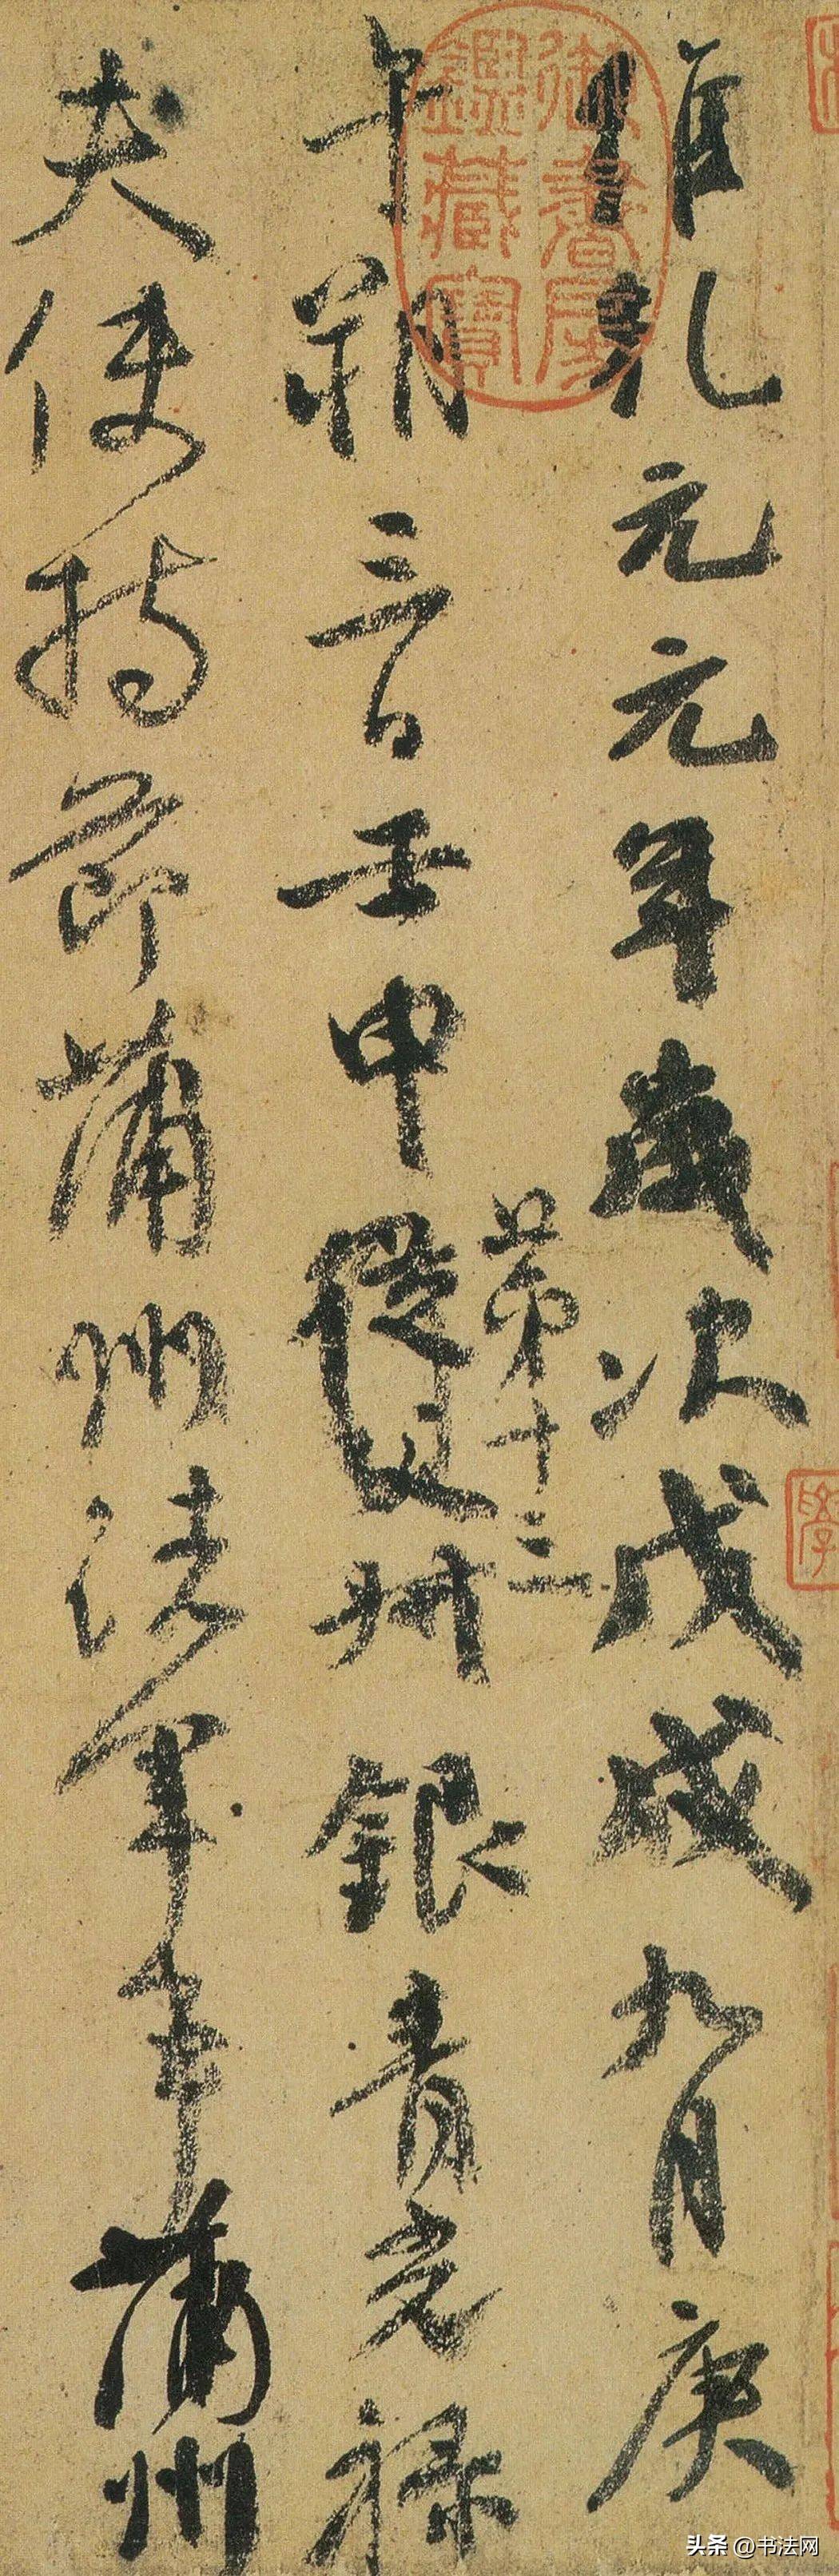 維乾元元年歲次戊戌九月庚
午朔三日壬申從父叔銀青光祿
第十三
夫使持節蒲州諸軍事蒲州
御書房
鑑藏寶
學
头条 @书法网